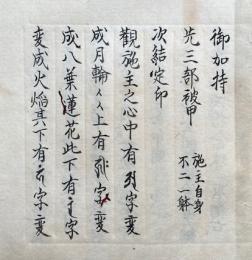 御加持
先三部被甲 施主自身
不二一躰
次結定印
觀施主之心中有 字變
成月輪〻〻上有 字変
成八葉蓮花此下有 字変
変成火焔其下有 字変